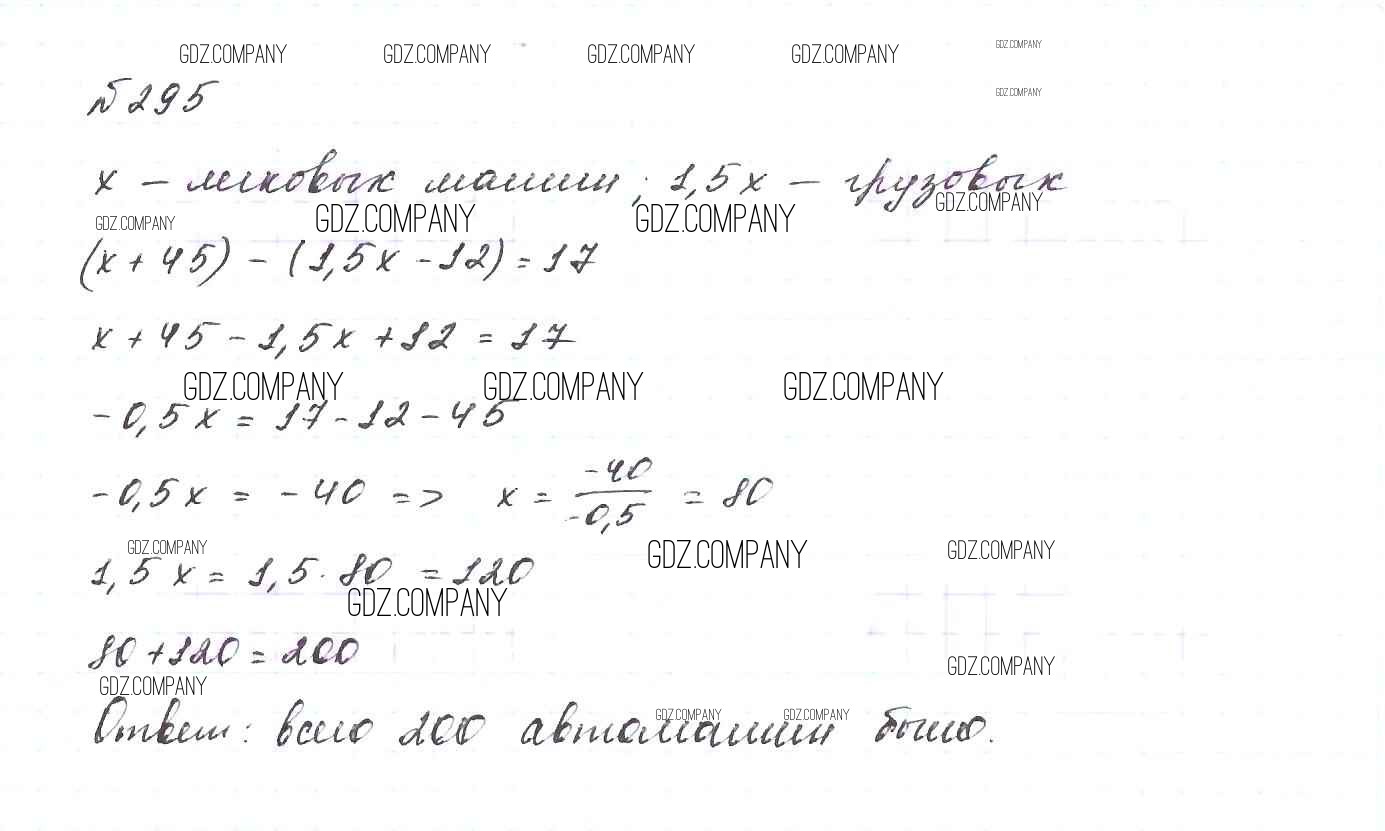 GDZ.COMPANY GDZ.COMPANY GDZ.COMPANY GDZ.COMPANY GDZ.COMPANY
GDZ.COMPANY
№295
x – легковых машин; 1,5x – грузовых
GDZ.COMPANY GDZ.COMPANY GDZ.COMPANY GDZ.COMPANY
(x + 45) – (1,5x – 12) = 17
x + 45 – 1,5x + 12 = 17
GDZ.COMPANY GDZ.COMPANY GDZ.COMPANY
-0,5x = 17 - 12 - 45
-0,5x = -40 => x = -40/-0,5 = 80
GDZ.COMPANY GDZ.COMPANY GDZ.COMPANY
1,5x = 1,5 · 80 = 120
GDZ.COMPANY
80 + 120 = 200
GDZ.COMPANY GDZ.COMPANY
GDZ.COMPANY GDZ.COMPANY
Ответ: всего 200 автомашин было.